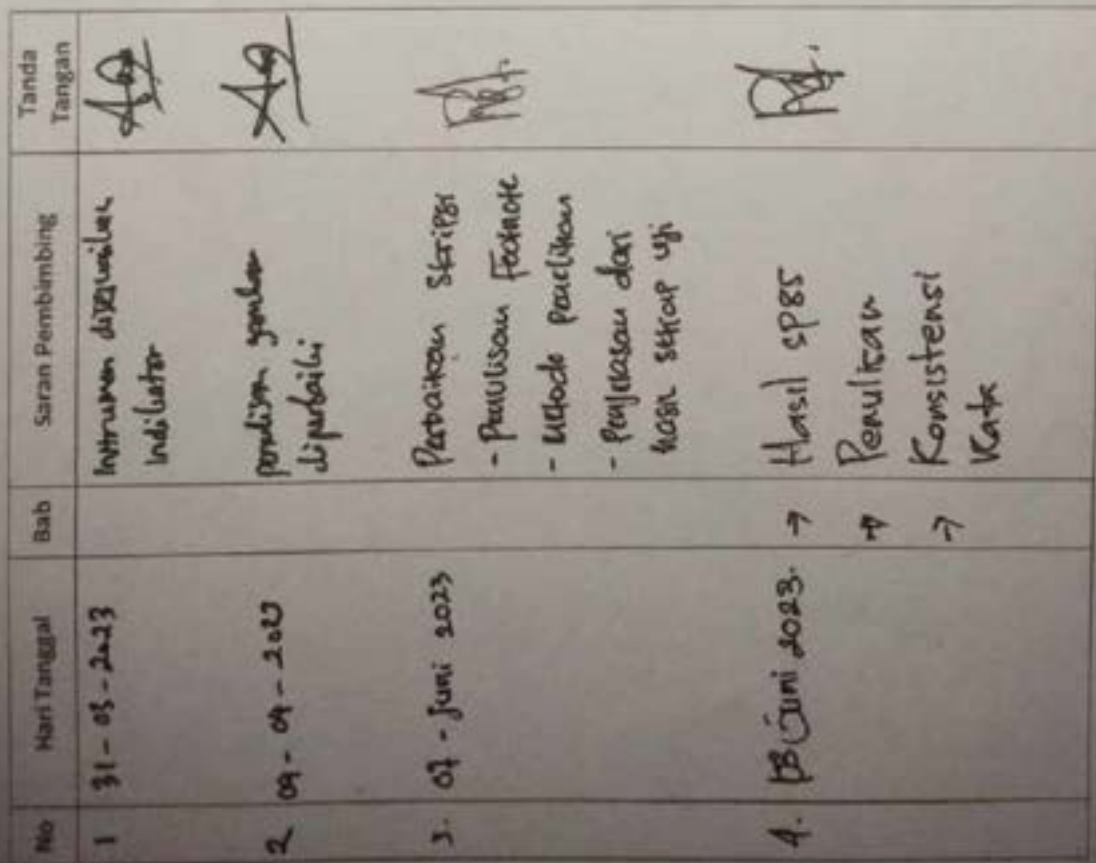 No Hari Tanggal Bab Saran Pembimbing Tanda Tangan
1 31 - 03 - 2023 Intrumen disesuaikan
Indikator
2 09 - 04 - 2023 penulisan
diperbaiki
3. 07 - Juni 2023 Perbaikan Skripsi
- Penulisan Footnote
- Metode penelitian
- Penjelasan dari
hasil setiap uji
4. Juni 2023. → Hasil SPSS
→ Penulisan
→ Konsistensi
Kata